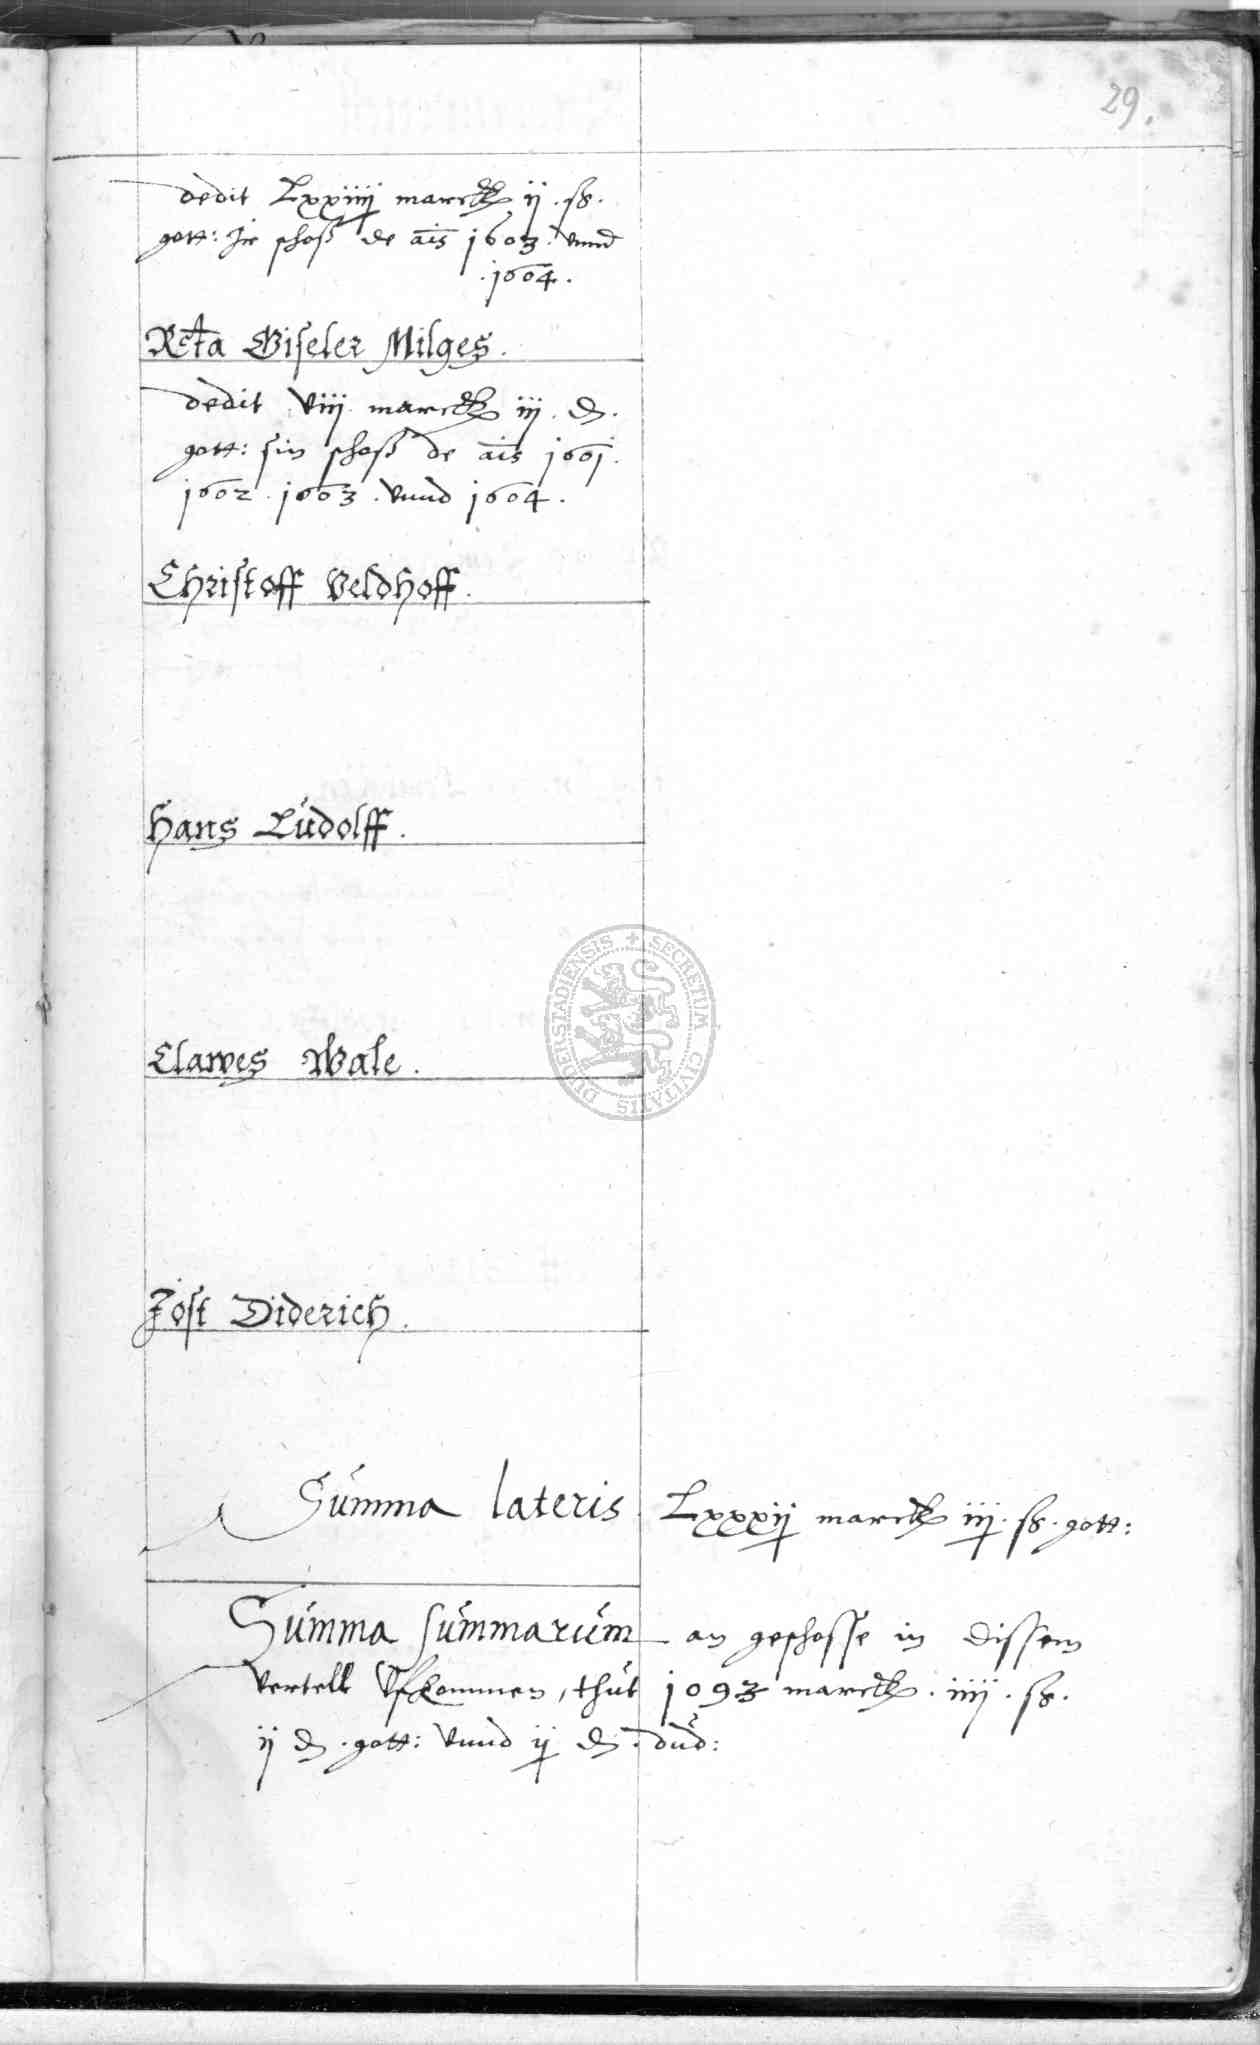 29.
dedit Lxxiiij marck ij . ß.
gott: Jr schoß de ais 1603. vnnd
.1604.
Rcta Giseler Milges.
dedit viij marck iij . d.
gott: sin schoß de ais 1601.
1602 . 1603 . vnnd 1604.
Christoff Veldhoff.
Hans Ludolff.
Clawes Wale.
Jost Diderich.
Summa lateris Lxxxij marck iij. ß. gott:
Summa summarum an geschosse in dissem
vertell vfkommen, thut 1093 marck. iiij . ß.
ij d. gott: vnnd ij d. dud:
DUDERSTADIENSIS + SECRETUM CIVITATIS